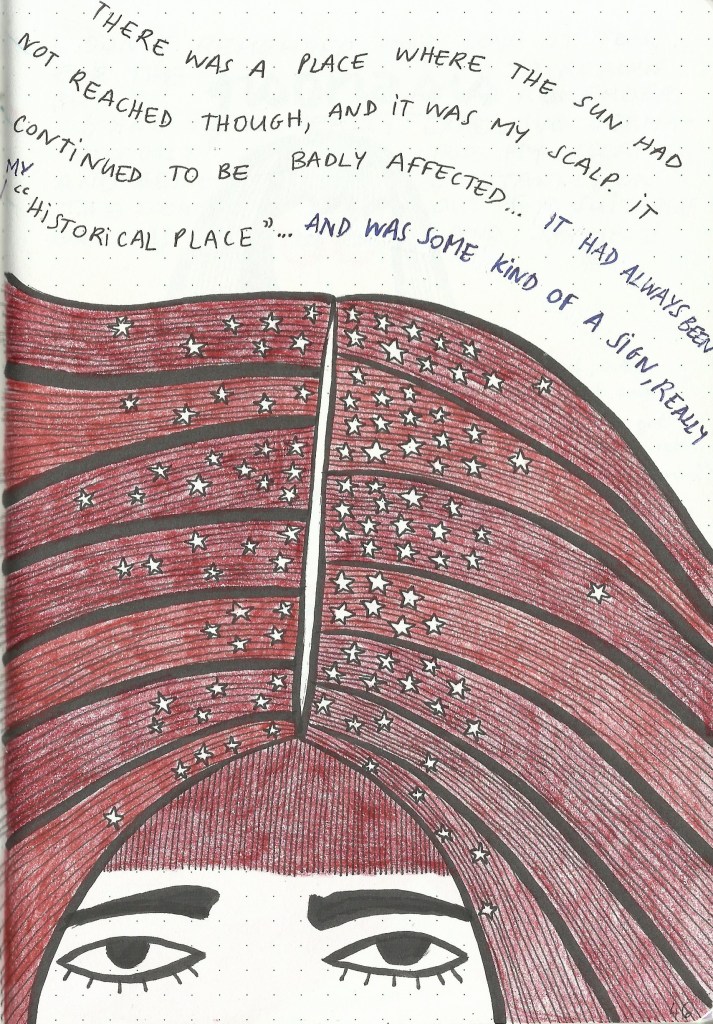 THERE WAS A PLACE WHERE THE SUN HAD
NOT REACHED THOUGH, AND IT WAS MY SCALP. IT
CONTINUED TO BE BADLY AFFECTED... IT HAD ALWAYS BEEN
MY "HISTORICAL PLACE"... AND WAS SOME KIND OF A SIGN, REALLY
46